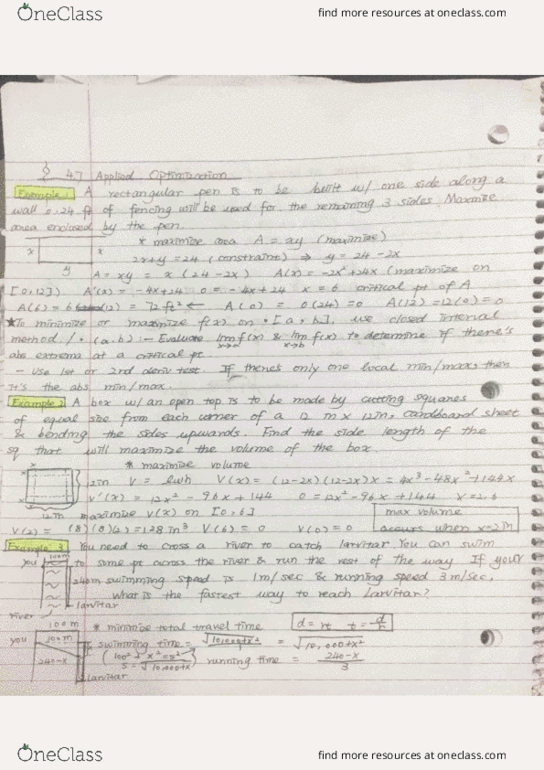 OneClass
find more resources at oneclass.com
§ 4.7 Applied Optimization
Example 1 A rectangular pen is to be built w/ one side along a
wall & 24 ft of fencing will be used for the remaining 3 sides. Maximize
area enclosed by the pen.
* maximize area A = xy (maximize)
x x
y
2x+y=24 (constraint) ⇒ y = 24-2x
A = xy = x (24-2x) A(x) = -2x²+24x (maximize on
[0,12]) A'(x) = -4x+24 0 = -4x+24 x = 6 critical pt of A
A(6) = 6 (12) = 72 ft² ← A(0) = 0(24)=0 A(12)=12(0)=0
★To minimize or maximize f(x) on [a,b], use closed interval
method / (a,b) - Evaluate lim f(x) & lim f(x) to determine if there's
x→a x→b
abs extrema at a critical pt
- Use 1st or 2nd deriv test. If there's only one local min/max, then
it's the abs min/max.
Example 2 A box w/ an open top is to be made by cutting squares
of equal size from each corner of a 12 in x 12in, cardboard sheet
& bending the sides upwards. Find the side length of the
sq that will maximize the volume of the box
* maximize volume
x
x
12in V = lwh V(x) = (12-2x)(12-2x)x = 4x³-48x²+144x
V'(x) = 12x² - 96x + 144 0 = 12x²-96x+144 x=2,6
12in maximize V(x) on [0,6]
V(2) = (8)(8)(2)=128in³ V(6) = 0 V(0)=0
max volume
occurs when x=2in
Example 3 You need to cross a river to catch larvitar. You can swim
you 100m to some pt across the river & run the rest of the way. If your
240m swimming speed is 1m/sec & running speed 3m/sec,
what is the fastest way to reach Larvitar?
larvitar
river
100m * minimize total travel time d = rt t = d/r
you 100m
swimming time = √10,000+x² = √10,000+x²
(100²+x²=s²
s=√10,000+x) running time = 240-x / 3
240-x
larvitar
OneClass
find more resources at oneclass.com